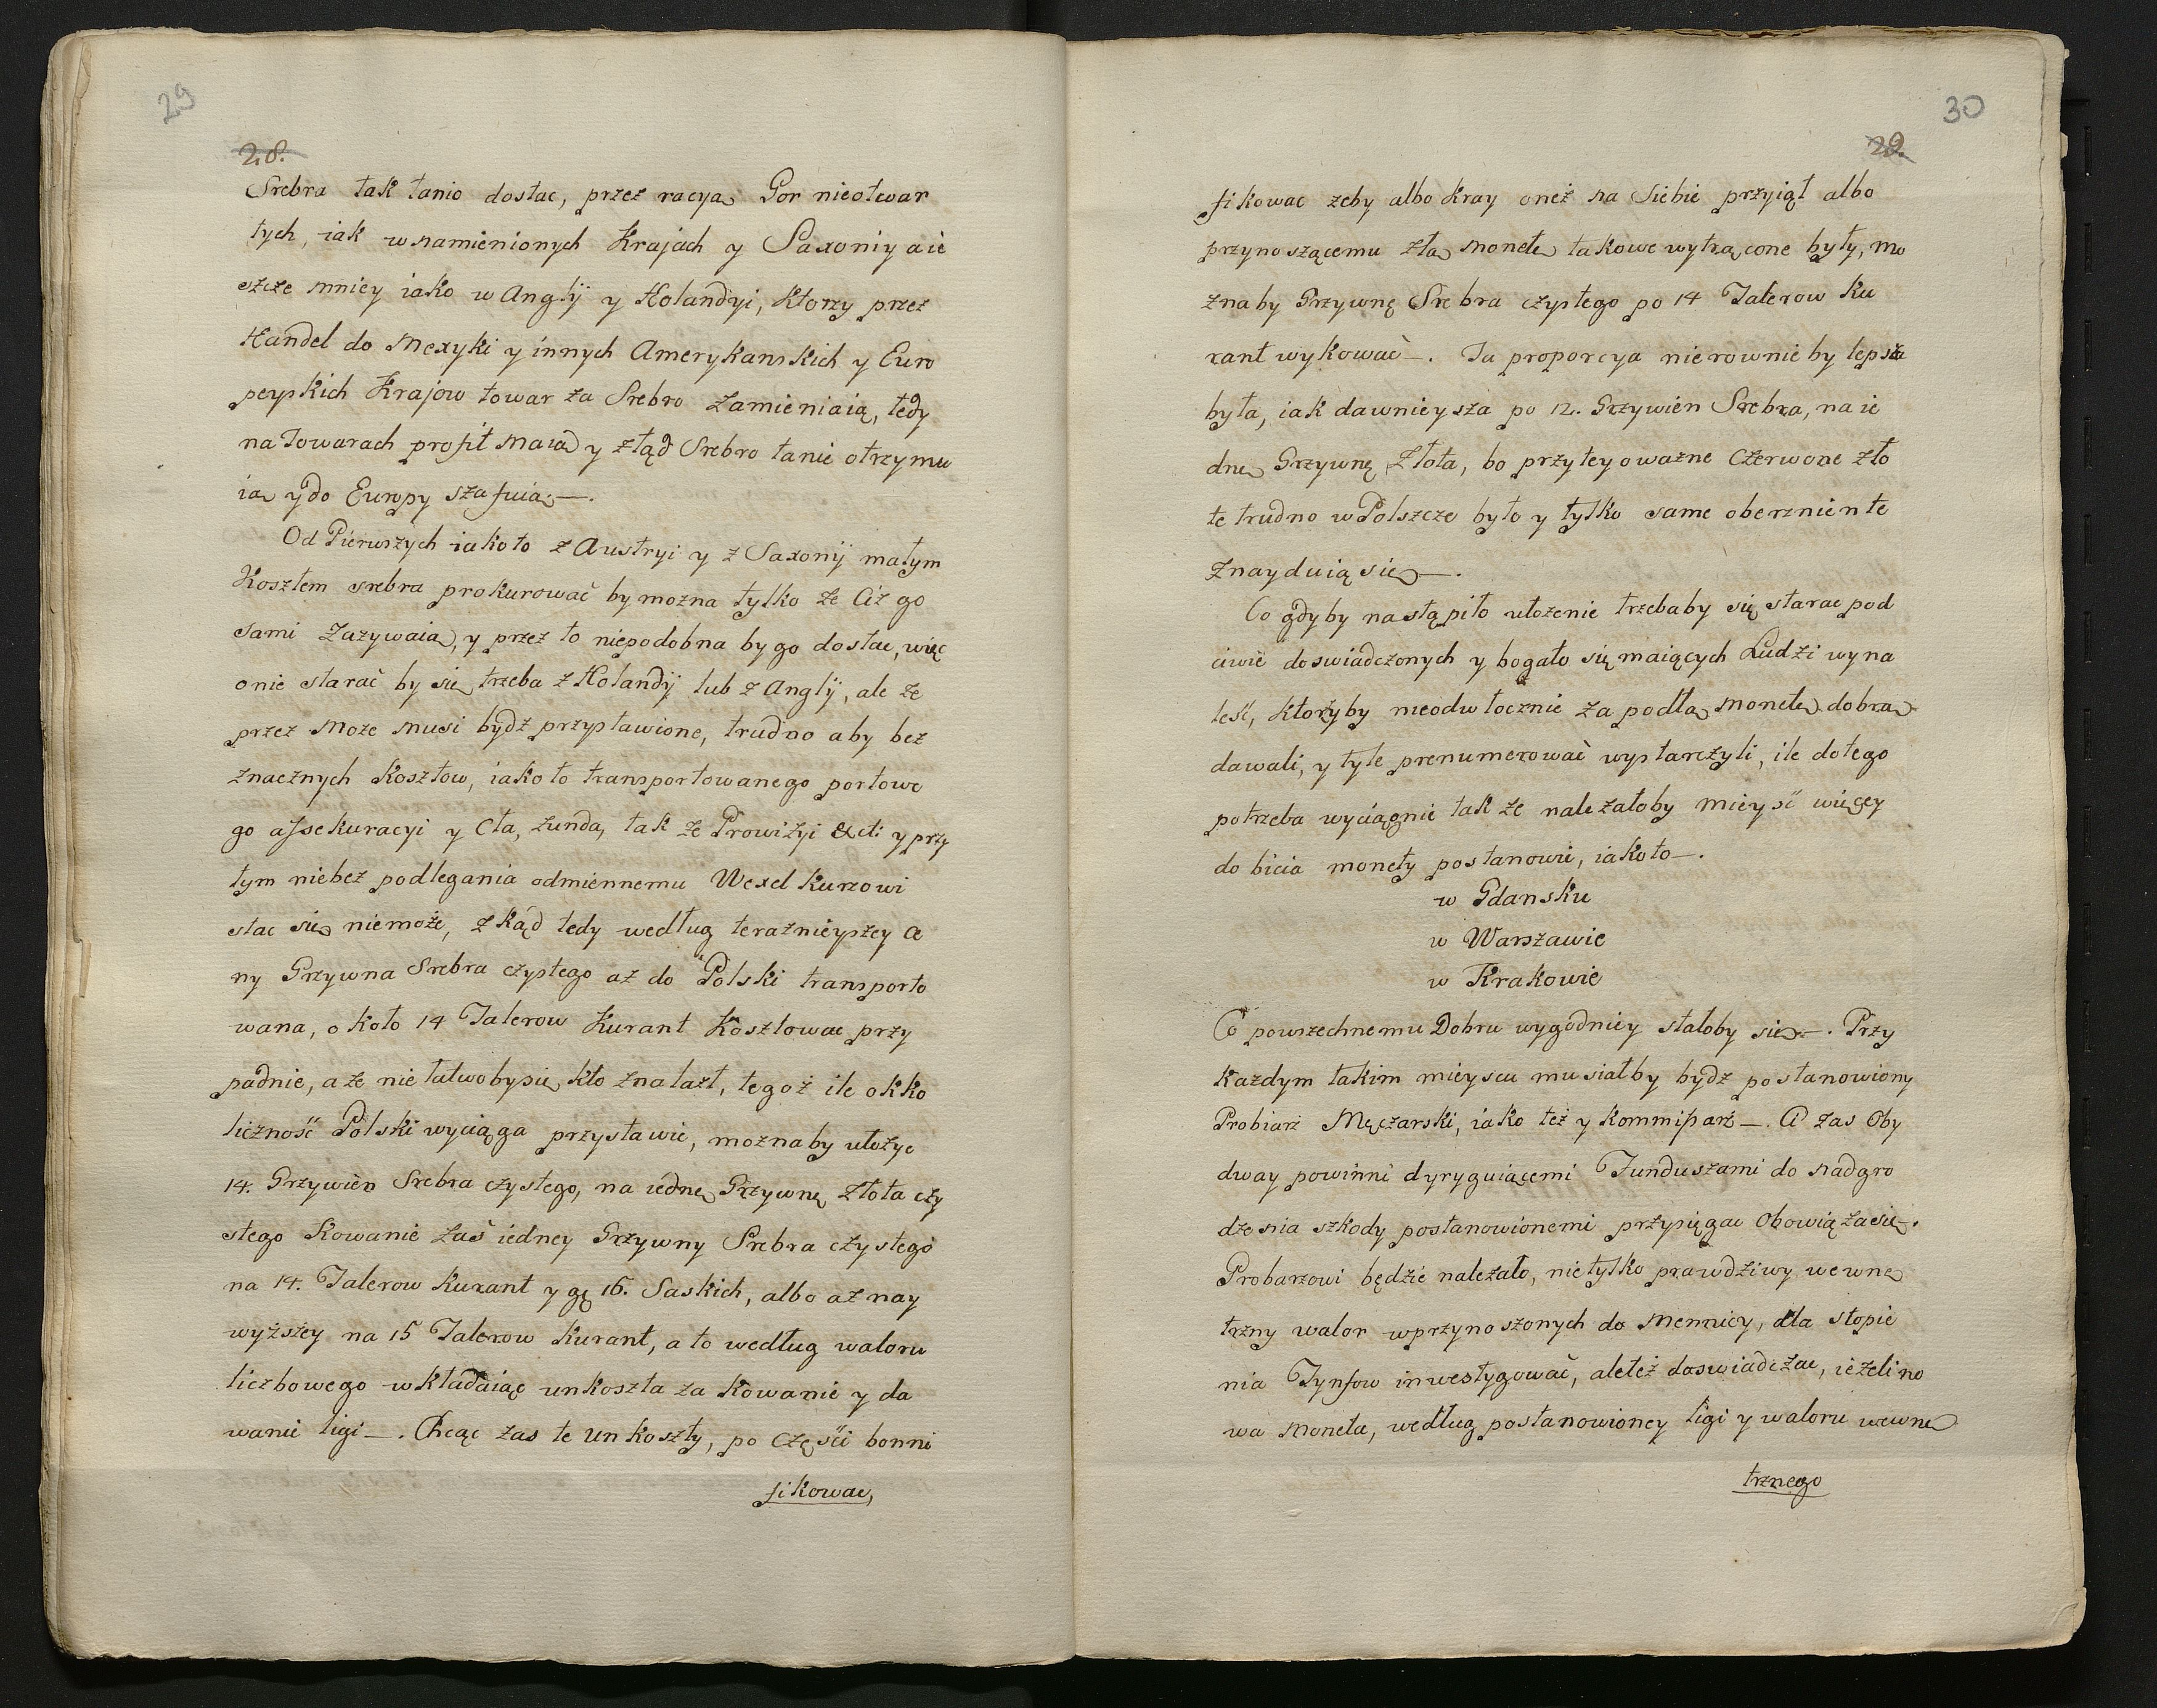 29
28.
Srebra tak tanio dostac, przez racyą Gor nieotwar
tych, iak wnamienionych Krajach y Saxoniy aie
szcze mniey iako w Anglij y Holandyi, Ktorzy przez
Handel do Mexyki y innych Amerykanskich y Euro
peyskich Krajow towar za Srebro zamieniaią, tedy
na Towarach profit maią y ztąd Srebro tanie otrzymu
ią y do Europy szafuią.—.
Od Pierwszych iakoto z Austryi y z Saxonij małym
Kosztem srebra prokurować by mozna tylko ze Ciż go
sami zazywaią, y przez to niepodobna by go dostac, więc
onie starać by się trzeba z Holandij lub z Anglij, ale ze
przez Może musi bydź przystawione, trudno aby bez
znacznych Kosztow, iakoto transportowanego portowe
go assekuracyi y Cła, zunda, tak ze Prowizyi &cti y przy
tym niebez podlegania odmiennemu Wexel Kursowi
stac się niemoże, zkąd tedy według teraznieyszey Ce
ny Grzywna Srebra czystego aż do Polski transporto
wana, około 14 Talerow Kurant Kosztowac przy
padnie, a ze nie łatwoby się kto znalazł, tegoż ile okko
liczność Polski wyciąga przystawic, moznaby ułozyc
14. Grzywien Srebra czystego, na iednę Grzywnę Złota czy
stego Kowanie zaś iedney Grzywny Srebra czystego
na 14. Talerow Kurant y gę 16. Saskich, albo az nay
wyższey na 15 Talerow Kurant, a to według waloru
liczbowego wkładaiąc unkoszta za Kowanie y da
wanie ligi—. Chcąc zas te unkoszty, po części bonni
fikowac,
30
29.
fikowac zeby albo Kray oneż na siebie przyiął albo
przynoszącemu złą Monetę takowe wytrącone były, mo
znaby Grzywnę Srebra czystego po 14 Talerow Ku
rant wykować—. Ta proporcya nierownie by lepsza
była, iak dawnieysza po 12. Grzywien Srebra, na ie
dnę Grzywnę Złota, bo przy tey ważne Czerwone zło
te trudno w Polszcze było y tylko same oberznięte
Znayduią się—.
Co gdyby nastąpiło ułozenie trzebaby się starac pod
ciwie doswiadczonych y bogato się maiących Ludzi wyna
leść, Ktorzyby nieodwłocznie za podłą Monetę dobrą
dawali, y tyle prenumerować wystarczyli, ile do tego
potrzeba wyciągnie tak ze nalezałoby mieysć więcey
do bicia monety postanowic, iakoto—.
w Gdansku
w Warszawie
w Krakowie
Co powszechnemu Dobru wygodniey stałoby się—. Przy
Kazdym takim mieyscu musiałby bydz postanowiony
Probiarz Męczarski, iako też y Kommissarż—. Ci zas Oby
dway powinni dyryguiącemi Funduszami do nadgro
dzenia szkody postanowionemi przysięgac Obowiąza się.
Probarzowi będzie nalezało, nietylko prawdziwy wewnę
trzny walor wprzynoszonych do Mennicy, dla stopie
nia Tynfow inwestygować, aleteż doswiadczac, iezeli no
wa Moneta, według postanowioney ligi y waloru wewnę
trznego